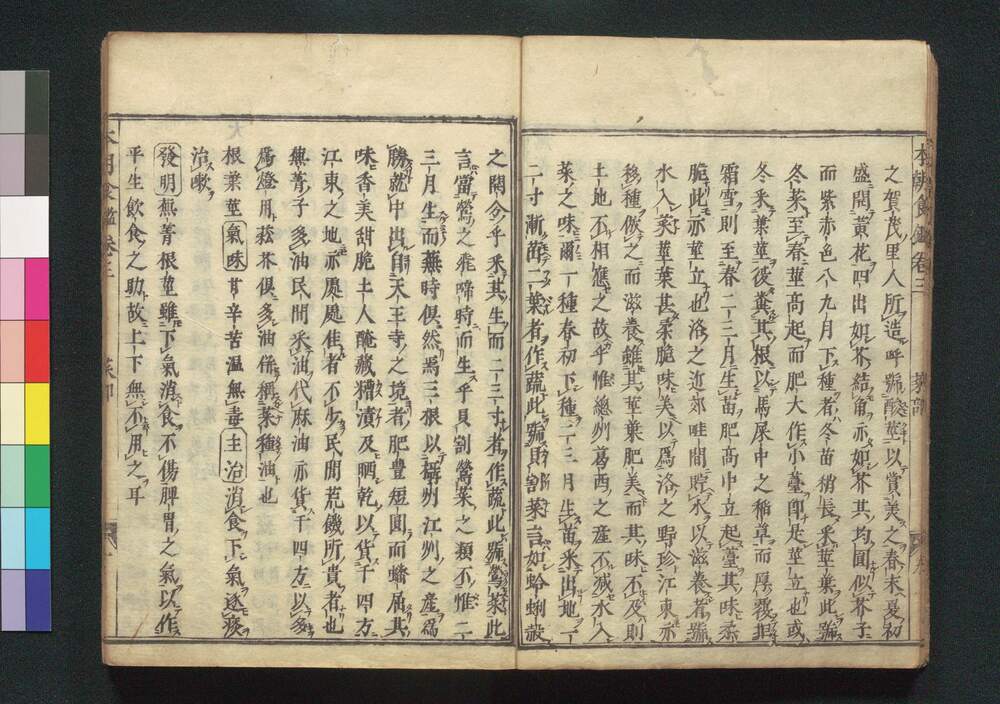 本朝食鑑卷三　菜部
之賀茂里人所造呼號酸莖以賞美之春末夏初
盛開黃花四出如芥結角亦如芥其均圓似芥子
而紫赤色八九月下種者冬苗稍長采莖葉此號
冬菜至春莖高起而肥大作小薹卽是莖立也或
冬采葉莖後糞其根以馬屎中之稻草而厚覆拒
霜雪則至春二三月生苗肥高中立起薹其味柔
脆此亦莖立也洛之近郊畦間貯水以滋養者號
水入菜莖葉甚柔脆味美以爲洛之野珍江東亦
移種傚之而滋養雖其莖葉肥美而其味不及則
土地不相應之故乎惟總州葛西之產不减水入
菜之味爾一種春初下種二三月生苗采出地一
二寸漸苗二葉者作蔬此號貝割菜言如蛤蜊殼
之開分乎采其生而二三寸者作蔬此號鶯菜此
言當鶯之飛啼時而生乎貝割鶯菜之類不惟二
三月生而蕪時俱然焉三根以攝州江州之產爲
勝就中出自天王寺之境者肥豐短圓而蟠屈其
味香美甜脆土人醃藏糟漬及晒乾以貨于四方
江東之地亦處處佳者不少民間荒饑所貴者也
蕪菁子多油民間采油代麻油亦貨于四方以多
爲燈用菘芥俱多油倶稱菜種油也
根葉莖氣味甘辛苦溫無毒主治消食下氣逐痰
治嗽
發明蕪菁根莖雖下氣消食不傷脾胃之氣以作
平生飮食之助故上下無不用之耳
本朝食鑑卷三　菜部